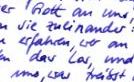 Gott an uns
sie zueinander?
erfahren, wer an
das Los, und
uns, was treibt